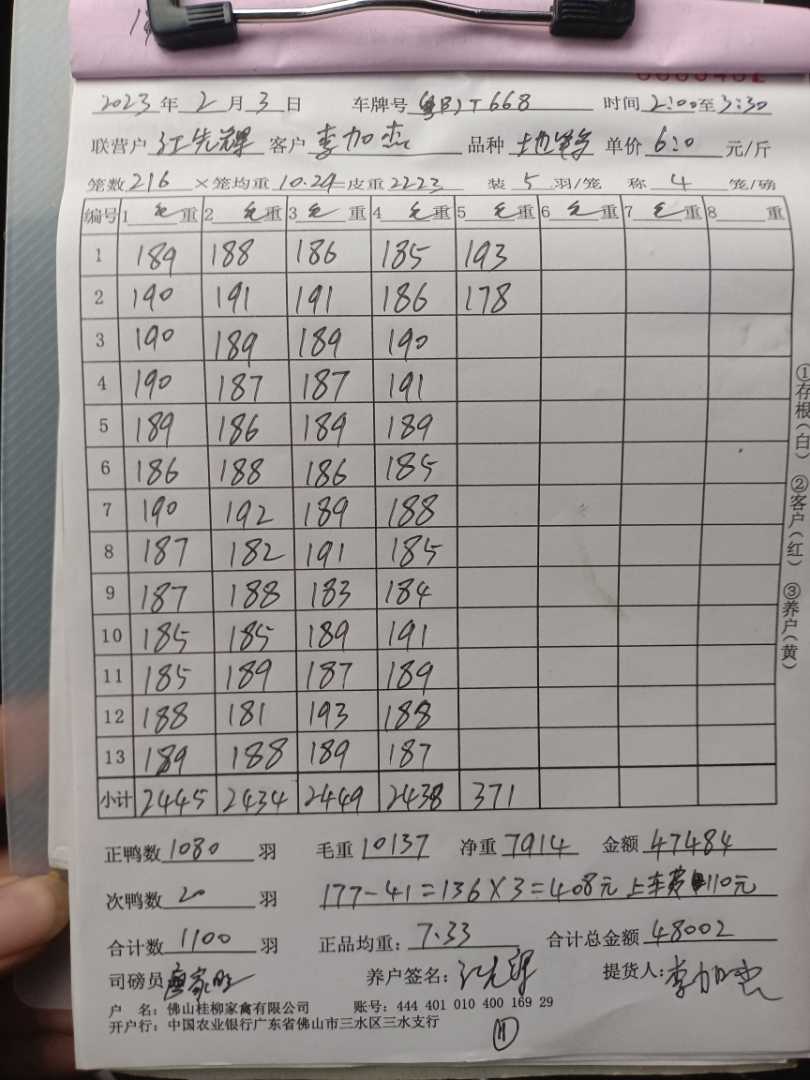 2023年 2月 3日 车牌号 T668 时间 2:00至3:30
联营户 江先辉 客户 李加杰 品种 单价 6.0 元/斤
笼数 216 ×笼均重 10.29=皮重 2223 装 5 羽/笼 称 4 笼/磅
编号 1 毛 重 2 毛 重 3 毛 重 4 毛 重 5 毛 重 6 毛 重 7 毛 重 8 重
1 189 188 186 185 193
2 190 191 191 186 178
3 190 189 189 190
4 190 187 187 191
5 189 186 189 189
6 186 188 186 185
7 190 192 189 188
8 187 182 191 185
9 187 188 183 184
10 185 185 189 191
11 185 189 187 189
12 188 181 193 188
13 189 188 189 187
小计 2445 2434 2449 2438 371
正鸭数 1080 羽 毛重 10137 净重 7914 金额 47484
次鸭数 20 羽 177-41=136×3=408元 上车费110元
合计数 1100 羽 正品均重: 7.33 合计总金额 48002
司磅员 养户签名: 江先辉 提货人: 李加杰
户 名: 佛山桂柳家禽有限公司 账号: 444 401 010 400 169 29
开户行: 中国农业银行广东省佛山市三水区三水支行
11
①存根(白) ②客户(红) ③养户(黄)